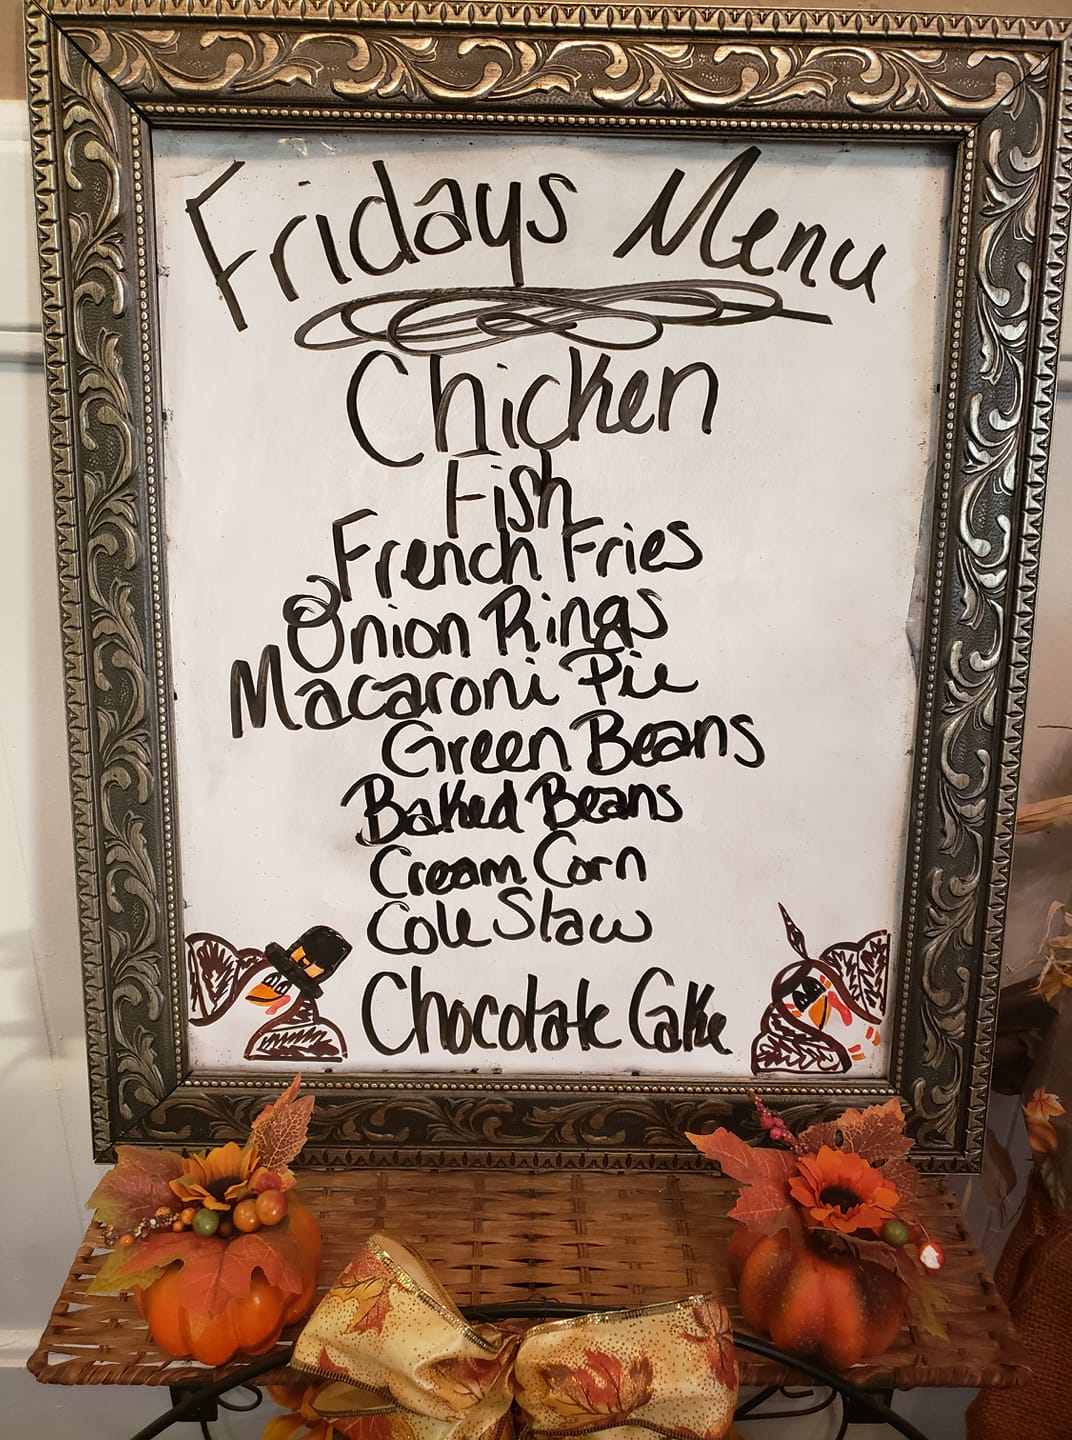 Fridays Menu
Chicken
Fish
French Fries
Onion Rings
Macaroni Pie
Green Beans
Baked Beans
Cream Corn
Cole Slaw
Chocolate Cake